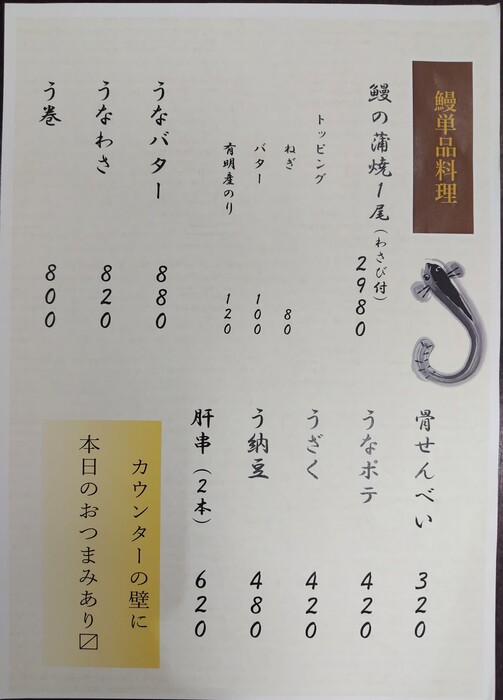 鰻単品料理
鰻の蒲焼1尾(わさび付) 2980
トッピング
ねぎ 80
バター 100
有明産のり 120
うなバター 880
うなわさ 820
う巻 800
骨せんべい 320
うなポテ 420
うざく 420
う納豆 480
肝串(2本) 620
カウンターの壁に
本日のおつまみあり〼